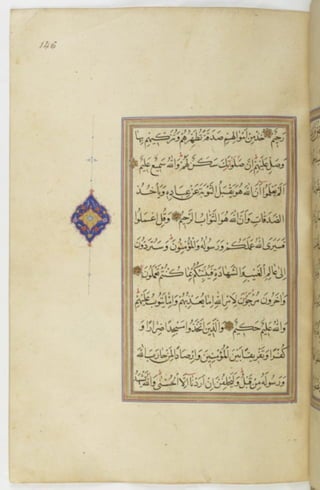 146
رَحِيمٌ خُذْ مِنْ أَمْوَالِهِمْ صَدَقَةً تُطَهِّرُهُمْ وَتُزَكِّيهِمْ بِهَا
وَصَلِّ عَلَيْهِمْ إِنَّ صَلَوٰتَكَ سَكَنٌ لَهُمْ وَاللَّهُ سَمِيعٌ عَلِيمٌ
أَلَمْ يَعْلَمُوا أَنَّ اللَّهَ هُوَ يَقْبَلُ التَّوْبَةَ عَنْ عِبَادِهِ وَيَأْخُذُ
الصَّدَقَاتِ وَأَنَّ اللَّهَ هُوَ التَّوَّابُ الرَّحِيمُ وَقُلِ اعْمَلُوا
فَسَيَرَى اللَّهُ عَمَلَكُمْ وَرَسُولُهُ وَالْمُؤْمِنُونَ وَسَتُرَدُّونَ
إِلَىٰ عَالِمِ الْغَيْبِ وَالشَّهَادَةِ فَيُنَبِّئُكُمْ بِمَا كُنْتُمْ تَعْمَلُونَ
وَآخَرُونَ مُرْجَوْنَ لِأَمْرِ اللَّهِ إِمَّا يُعَذِّبُهُمْ وَإِمَّا يَتُوبُ عَلَيْهِمْ
وَاللَّهُ عَلِيمٌ حَكِيمٌ وَالَّذِينَ اتَّخَذُوا مَسْجِدًا ضِرَارًا وَ
كُفْرًا وَتَفْرِيقًا بَيْنَ الْمُؤْمِنِينَ وَإِرْصَادًا لِمَنْ حَارَبَ اللَّهَ
وَرَسُولَهُ مِنْ قَبْلُ وَلَيَحْلِفُنَّ إِنْ أَرَدْنَا إِلَّا الْحُسْنَىٰ وَاللَّهُ يَشْهَدُ